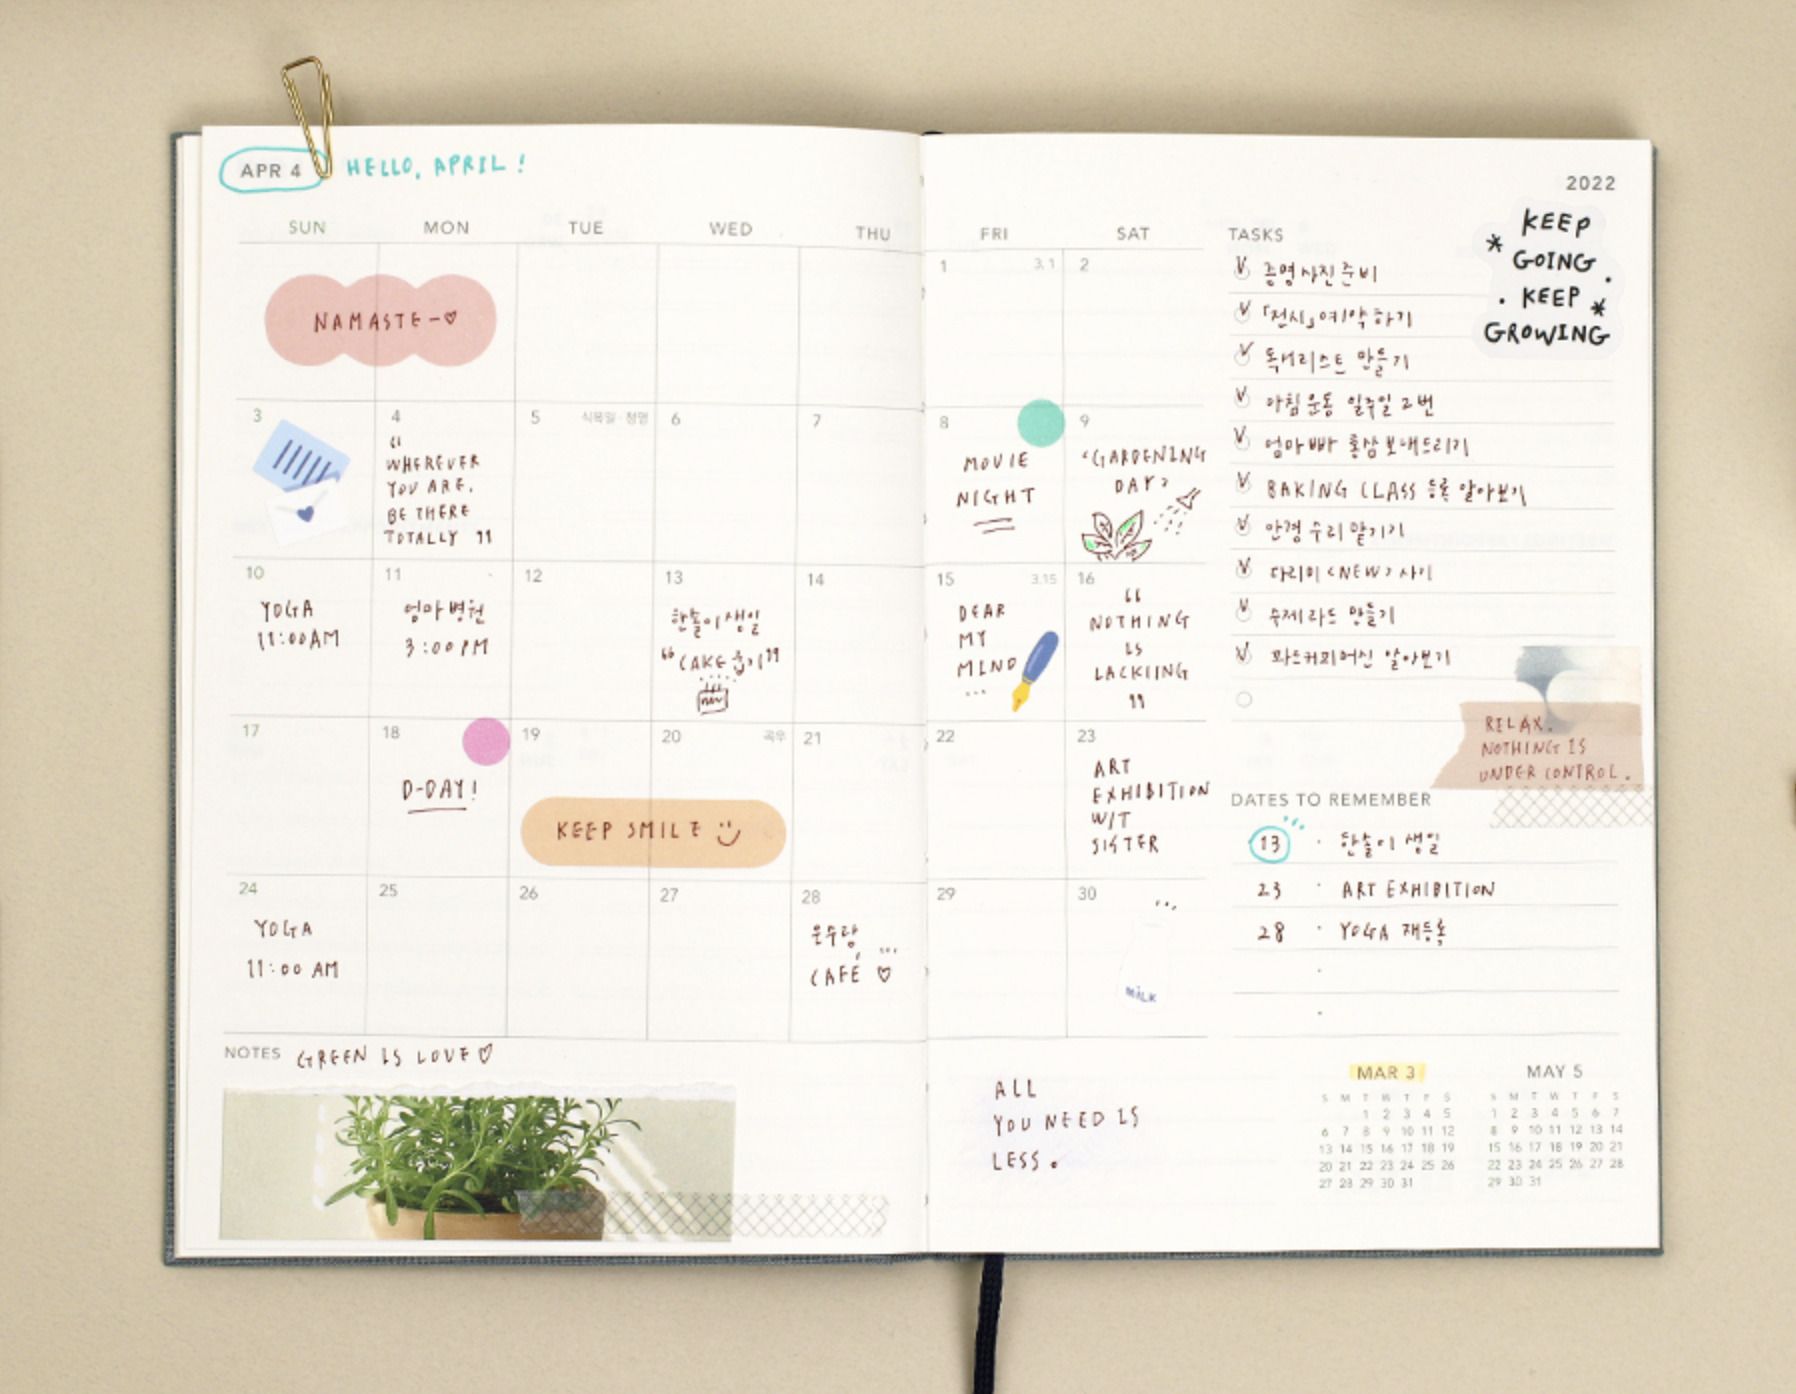 APR 4 HELLO, APRIL!
2022
KEEP
GOING.
KEEP
GROWING
SUN MON TUE WED THU FRI SAT
NAMASTE-♡
1 3.1 2
3 4 5 식목일·청명 6 7 8 9
“
WHEREVER
YOU ARE,
BE THERE
TOTALLY ”
MOVIE
NIGHT
‘GARDENING
DAY’
10 11 12 13 14 15 3.15 16
YOGA
11:00AM
엄마 병원
3:00PM
한솔이 생일
“CAKE 굽기”
DEAR
MY
MIND
...
“
NOTHING
IS
LACKIING
”
17 18 19 20 곡우 21 22 23
D-DAY!
KEEP SMILE
ART
EXHIBITION
WIT
SISTER
24 25 26 27 28 29 30
YOGA
11:00 AM
은수랑
CAFE ♡
MILK
TASKS
증명사진 준비
「전시」 예약하기
독서리스트 만들기
아침 운동 일주일 2번
엄마빠 홍삼 보내드리기
BAKING CLASS 등록 알아보기
안경 수리 맡기기
다리미 <NEW> 사기
수제라드 만들기
알아보기
RELAX.
NOTHING IS
UNDER CONTROL.
DATES TO REMEMBER
13 · 한솔이 생일
23 · ART EXHIBITION
28 · YOGA 재등록
NOTES GREEN IS LOVE♡
ALL
YOU NEED IS
LESS.
MAR 3
S M T W T F S
1 2 3 4 5
6 7 8 9 10 11 12
13 14 15 16 17 18 19
20 21 22 23 24 25 26
27 28 29 30 31
MAY 5
S M T W T F S
1 2 3 4 5 6 7
8 9 10 11 12 13 14
15 16 17 18 19 20 21
22 23 24 25 26 27 28
29 30 31